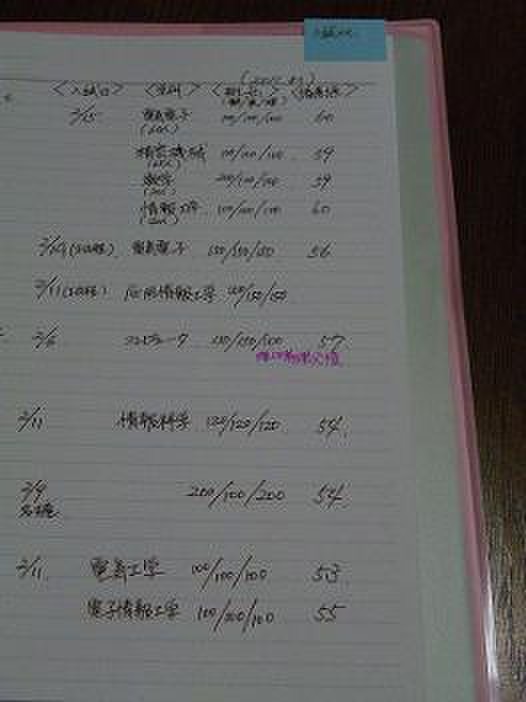 <入試日> <学科> <配点> <偏差値>
2/15 電気電子 100/100/100 60
精密機械 100/100/100 59
数学 200/100/100 59
情報工学 100/100/100 60
電気電子 150/150/150 56
2/11 応用情報工学 150/150/150
2/6 コンピュータ 150/150/100 57
2/11 情報科学 120/120/120 54
2/9 200/100/200 54
名古屋
2/11 電気工学 100/100/100 53
電子情報工学 100/100/100 55